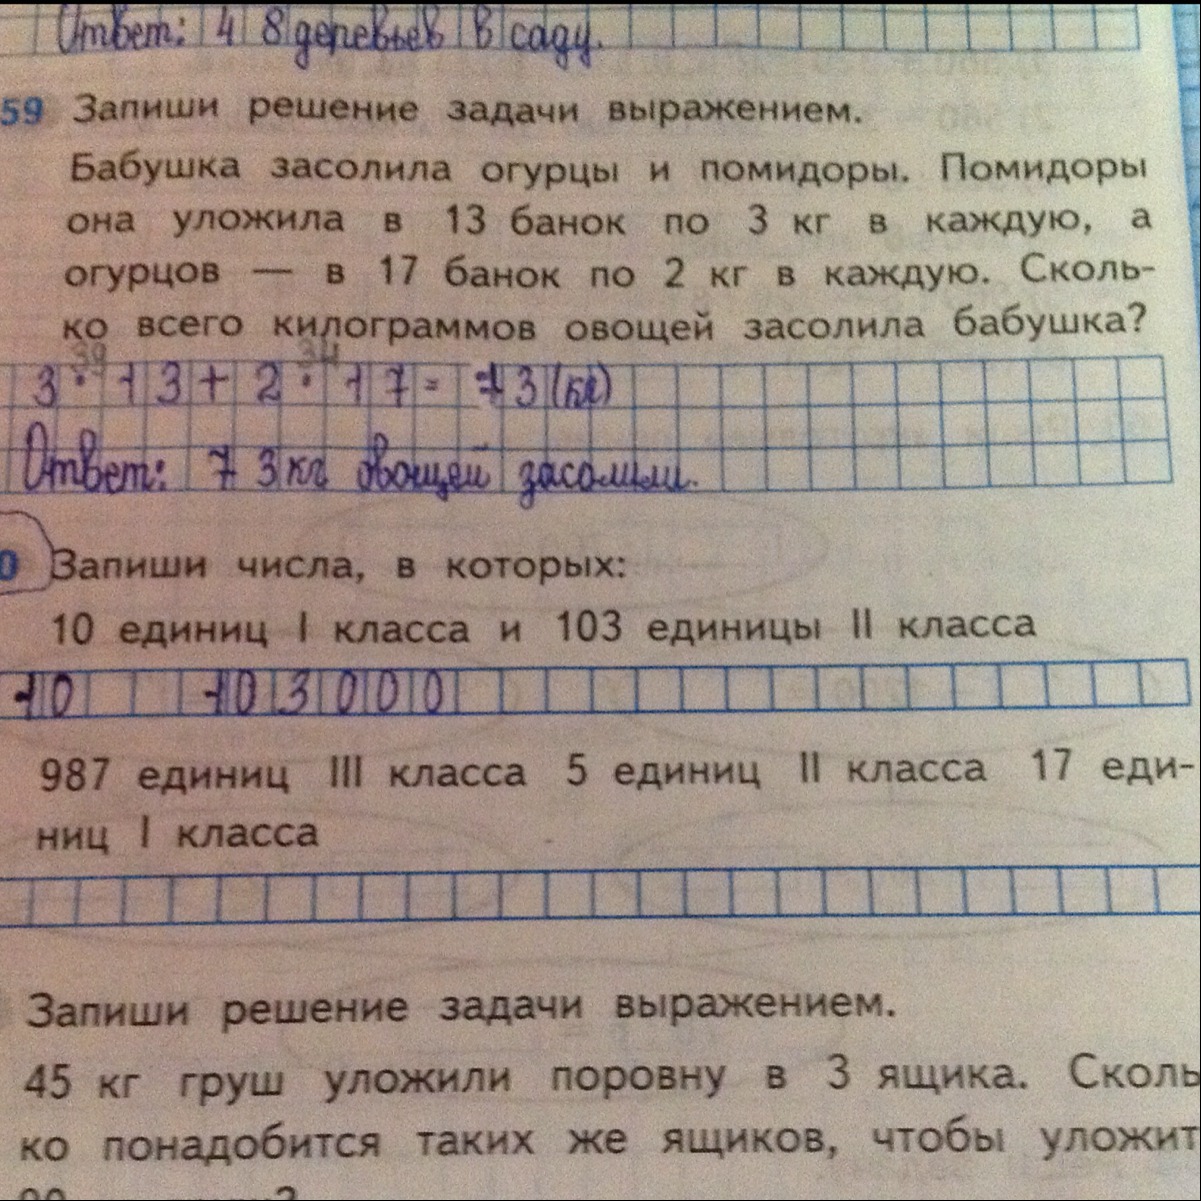 Ответ: 48 деревьев в саду.
59 Запиши решение задачи выражением.
Бабушка засолила огурцы и помидоры. Помидоры
она уложила в 13 банок по 3 кг в каждую, а
огурцов — в 17 банок по 2 кг в каждую. Сколь-
ко всего килограммов овощей засолила бабушка?
39 34
3 · 13 + 2 · 17 = 73 (кг)
Ответ: 73 кг овощей засолили.
0 Запиши числа, в которых:
10 единиц I класса и 103 единицы II класса
10 103000
987 единиц III класса 5 единиц II класса 17 еди-
ниц I класса
Запиши решение задачи выражением.
45 кг груш уложили поровну в 3 ящика. Сколь
ко понадобится таких же ящиков, чтобы уложит